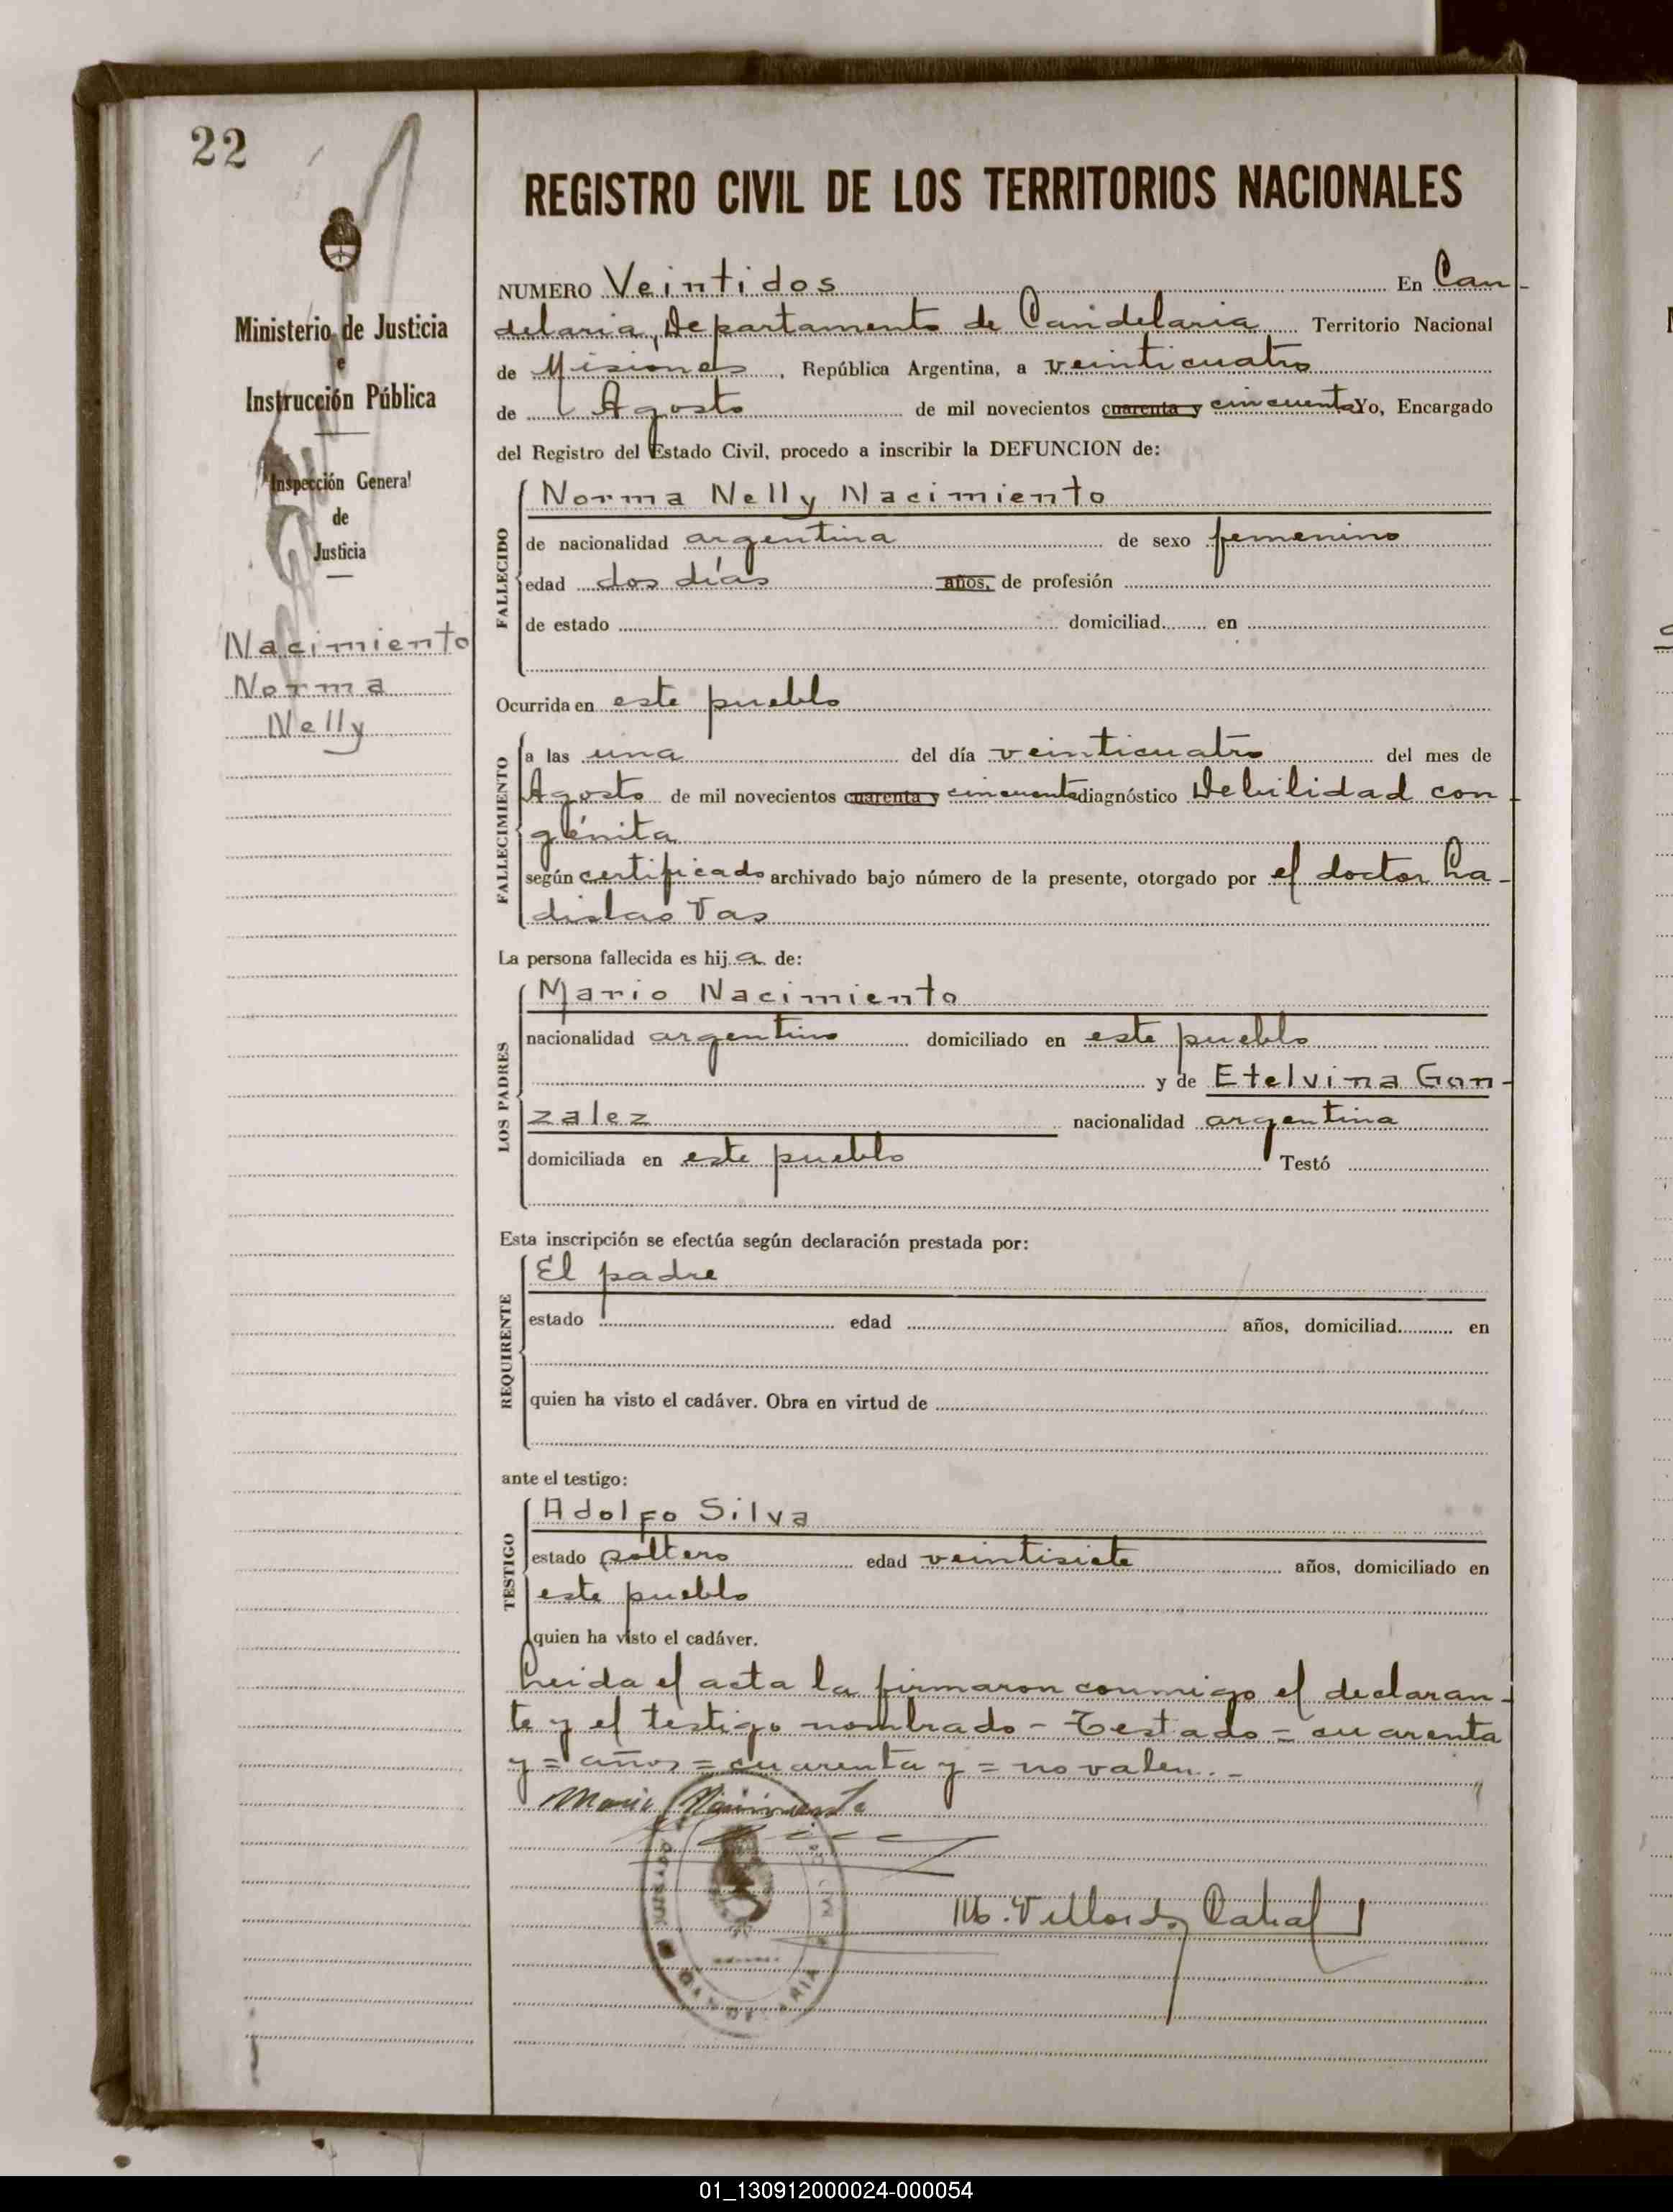 22
Ministerio de Justicia
e
Instrucción Pública
Inspección General
de
Justicia
Nacimiento
Norma
Nelly
REGISTRO CIVIL DE LOS TERRITORIOS NACIONALES
NUMERO Veintidos En Can-
delaria, Departamento de Candelaria Territorio Nacional
de Misiones, República Argentina, a veinticuatro
de Agosto de mil novecientos cuarenta y cincuenta Yo, Encargado
del Registro del Estado Civil, procedo a inscribir la DEFUNCION de:
FALLECIDO
Norma Nelly Nacimiento
de nacionalidad argentina de sexo femenino
edad dos días años, de profesión
de estado domiciliad en
Ocurrida en este pueblo
FALLECIMIENTO
a las una del día veinticuatro del mes de
Agosto de mil novecientos cuarenta y cincuenta diagnóstico Debilidad con-
génita
según certificado archivado bajo número de la presente, otorgado por el doctor La-
dislao Vas
La persona fallecida es hija de:
LOS PADRES
Mario Nacimiento
nacionalidad argentino domiciliado en este pueblo
y de Etelvina Gon-
zalez nacionalidad argentina
domiciliada en este pueblo Testó
Esta inscripción se efectúa según declaración prestada por:
REQUIRENTE
El padre
estado edad años, domiciliad en
quien ha visto el cadáver. Obra en virtud de
ante el testigo:
TESTIGO
Adolfo Silva
estado soltero edad veintisiete años, domiciliado en
este pueblo
quien ha visto el cadáver.
Leida el acta la firmaron conmigo el declaran-
te y el testigo nombrado - Testado = cuarenta
y = años = cuarenta y = no valen. -
Mario Nacimiento
CANDELARIA
01_130912000024-000054